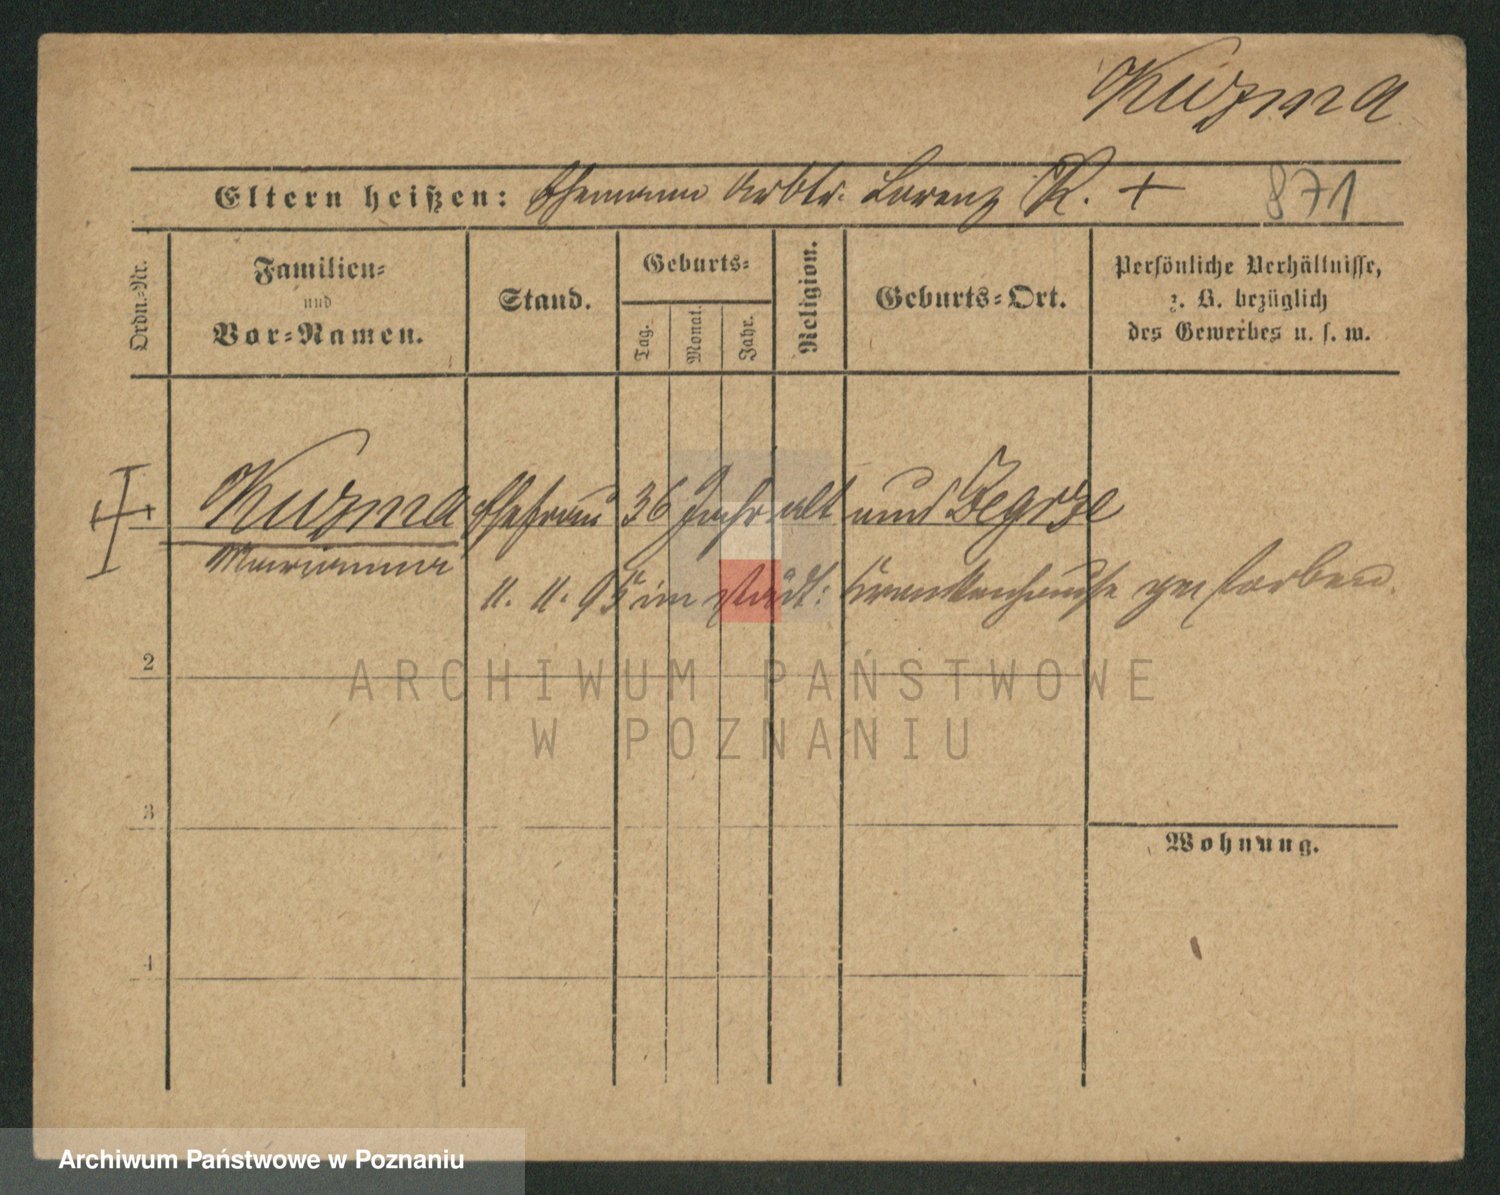 Kuzma
Eltern heißen: Ehemann Arbtr. Lorenz K. + 871
Ordn.-Nr.
Familien-
und
Vor-Namen.
Stand.
Geburts-
Tag.
Monat.
Jahr.
Religion.
Geburts-Ort.
Persönliche Verhältnisse,
z. B. bezüglich
des Gewerbes u. s. w.
Kuzma Ehefrau 36 Jahr alt aus Zegrze
Marianna
11. 11. 95 im städt: Krankenhause gestorben.
2
ARCHIWUM PAŃSTWOWE
W POZNANIU
3
Wohnung.
4
Archiwum Państwowe w Poznaniu